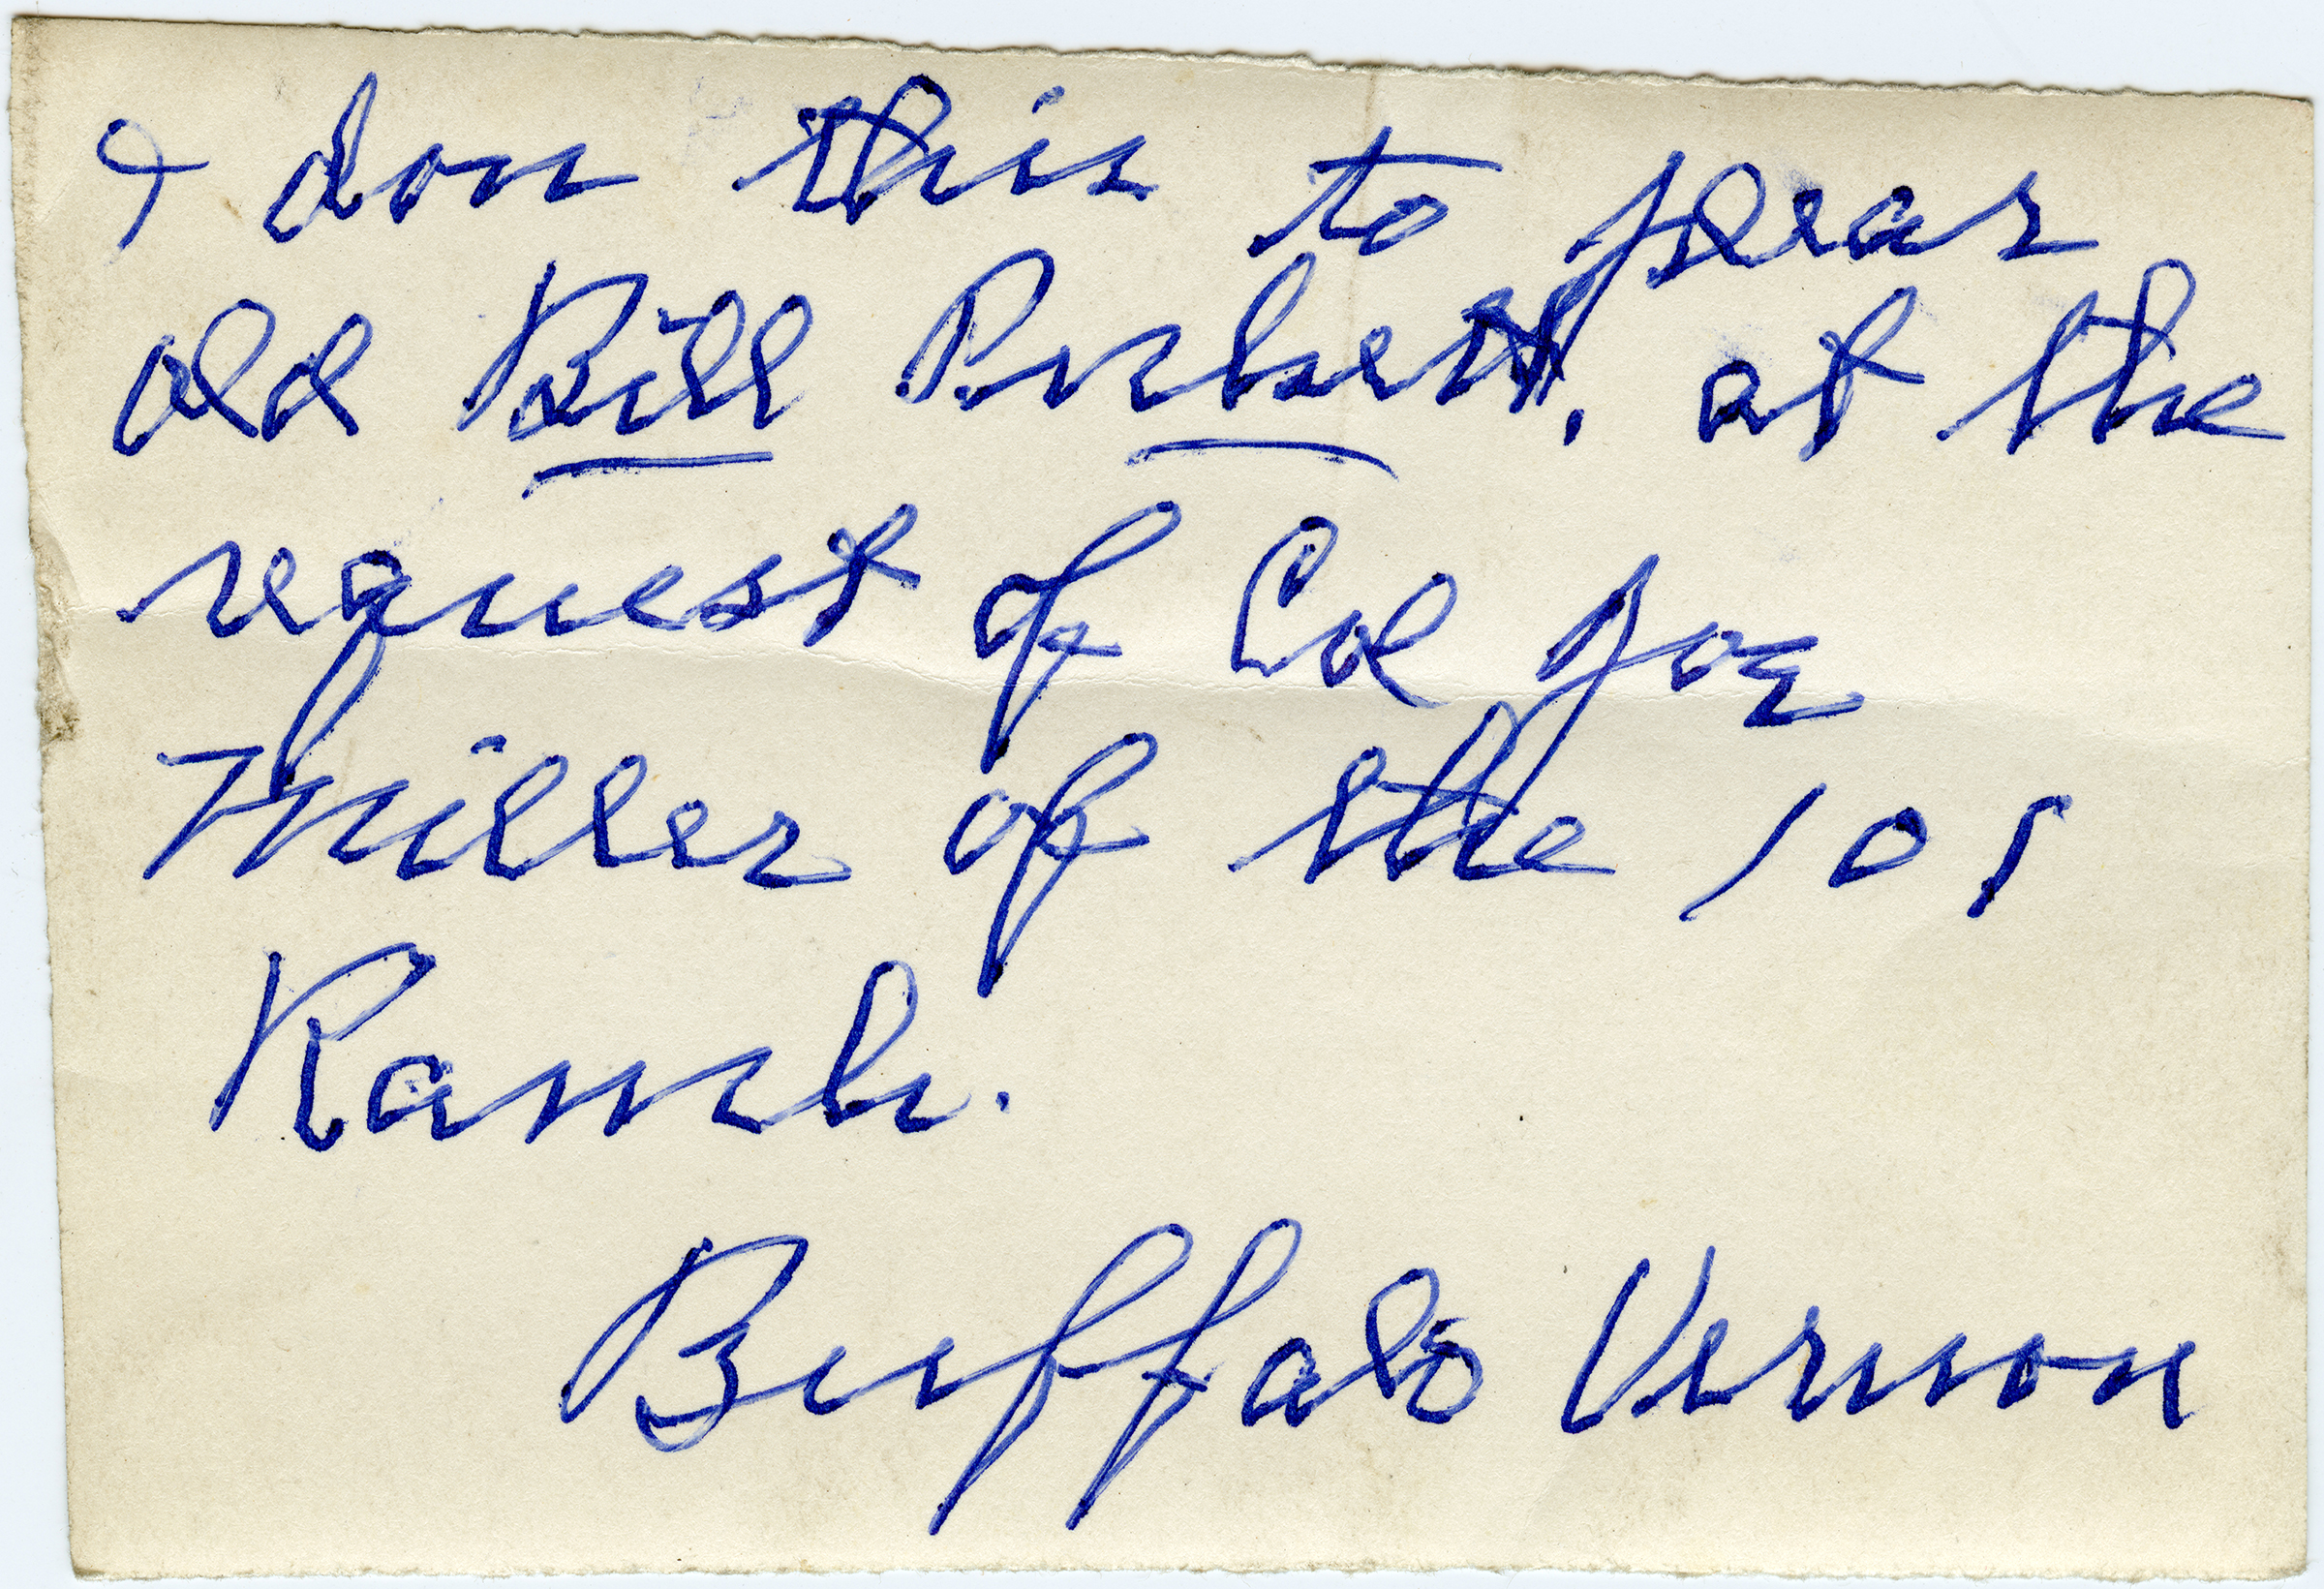 I don this to
old Bill at the
request of Col Joe
Miller of the 101
Ranch.
Buffalo Vernon